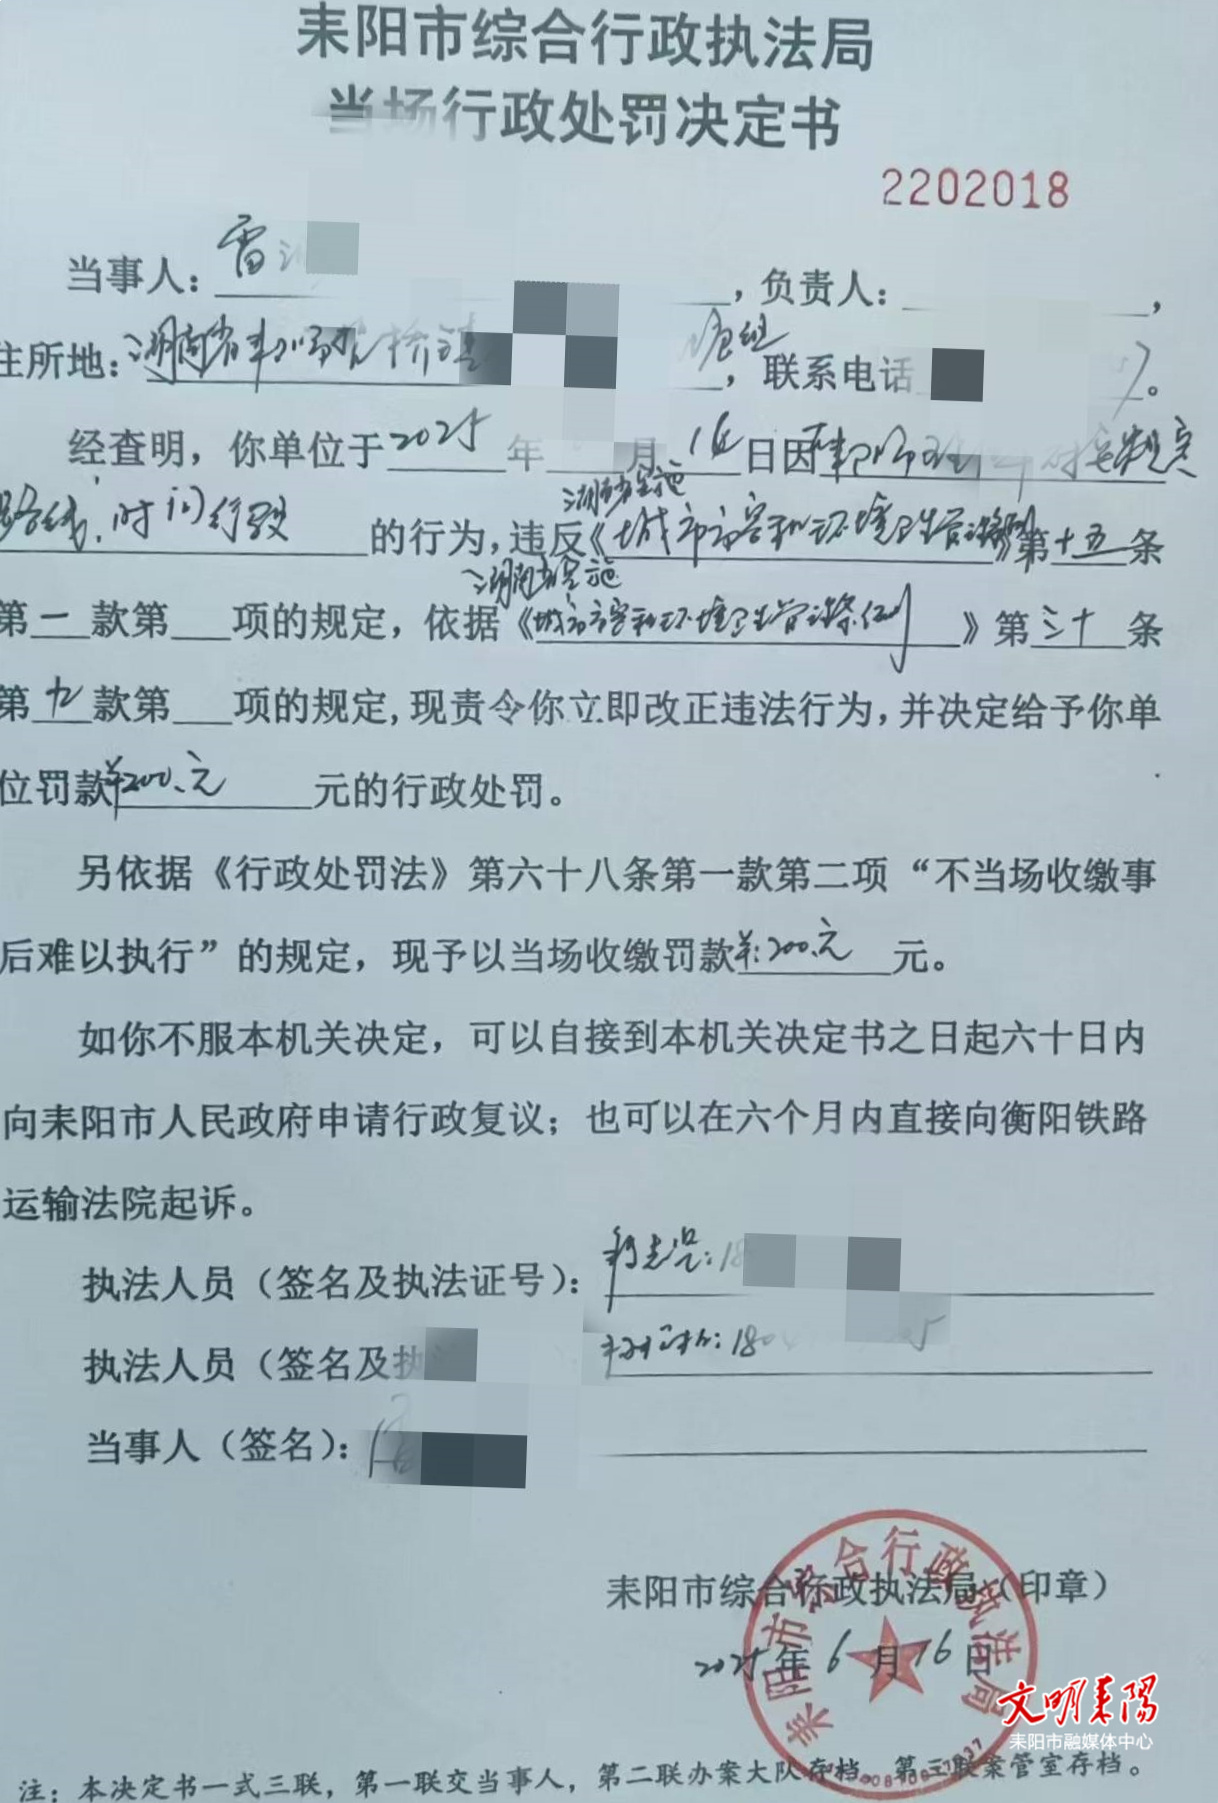 耒阳市综合行政执法局
当场行政处罚决定书
2202018
当事人：雷 ，负责人： ，
住所地：湖南省 桥镇 组 ，联系电话 。
经查明，你单位于2025年 月16日因 规定
路线、时间行驶 的行为，违反《湖南省实施城市市容和环境卫生管理条例》第十五条
第一款第 项的规定，依据《湖南省实施城市市容和环境卫生管理条例》第三十条
第九款第 项的规定，现责令你立即改正违法行为，并决定给予你单
位罚款¥200.元 元的行政处罚。
另依据《行政处罚法》第六十八条第一款第二项“不当场收缴事
后难以执行”的规定，现予以当场收缴罚款¥:200.元 元。
如你不服本机关决定，可以自接到本机关决定书之日起六十日内
向耒阳市人民政府申请行政复议；也可以在六个月内直接向衡阳铁路
运输法院起诉。
执法人员（签名及执法证号）： 18
执法人员（签名及执 180 5
当事人（签名）：
耒阳市综合行政执法局（印章）
2025年6月16日
耒阳市综合行政执法局
文明耒阳
耒阳市融媒体中心
注：本决定书一式三联，第一联交当事人，第二联办案大队存档。第三联案管室存档。